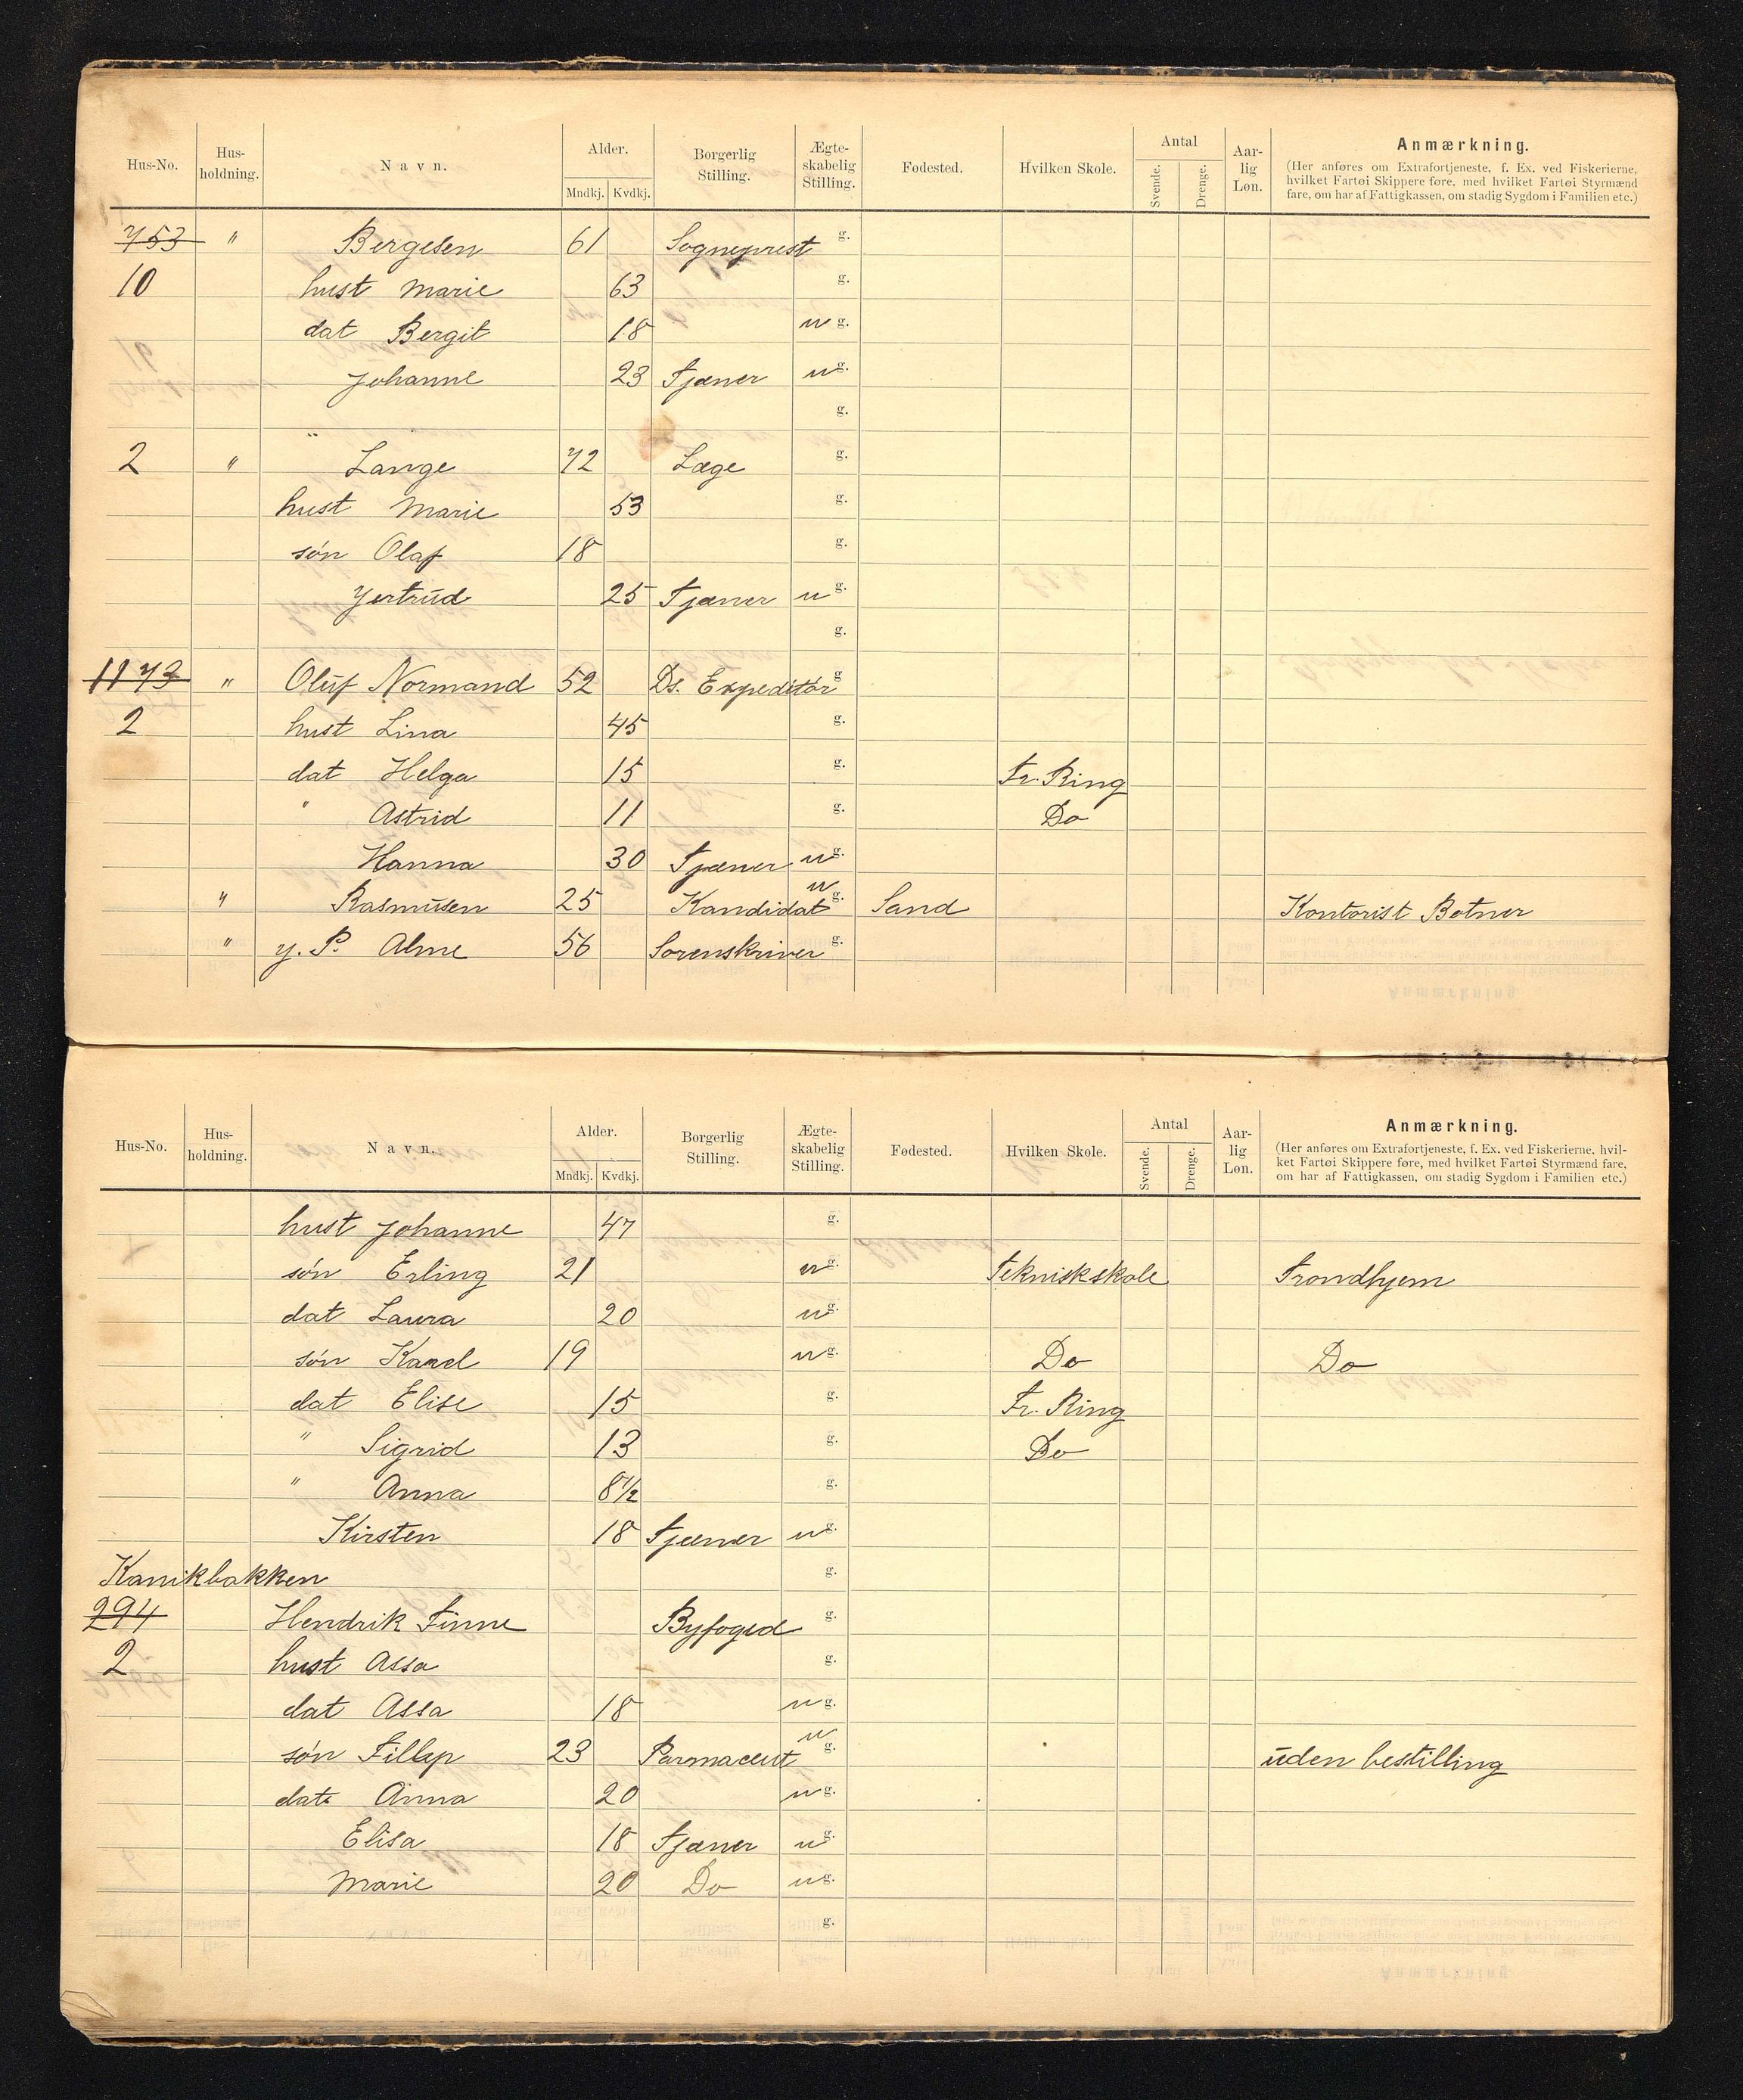 Hus-No. Hus-holdning. Navn. Alder. Mndkj. Kvdkj. Borgerlig Stilling. Ægte-skabelig Stilling. Fødested. Hvilken Skole. Antal Svende. Drenge. Aar-lig Løn. Anmærkning.
(Her anføres om Extrafortjeneste, f. Ex. ved Fiskerierne,
hvilket Fartøi Skippere føre, med hvilket Fartøi Styrmænd
fare, om har af Fattigkassen, om stadig Sygdom i Familien etc.)
753 " Bergesen 61 Sogneprest g.
10 hust Marie 63 g.
dat Bergit 18 u g.
Johanne 23 Tjæner u g.
g.
2 " Lange 72 Læge g.
hust Marie 53 g.
søn Olaf 18 g.
Yertrud 25 Tjæner u g.
g.
1173 " Oluf Normand 52 Ds. Expeditør g
2 hust Lina 45 g.
dat Helga 15 g. Fr. Ring
" Astrid 11 g. Do
Hanna 30 Tjæner u g.
" Rasmusen 25 Kandidat u g. Sand Kontorist Botner
" y. P. Alme 56 Sorenskriver g.
Hus-No. Hus-holdning. Navn. Alder. Mndkj. Kvdkj. Borgerlig Stilling. Ægte-skabelig Stilling. Fødested. Hvilken Skole. Antal Svende. Drenge. Aar-lig Løn. Anmærkning.
(Her anføres om Extrafortjeneste, f. Ex. ved Fiskerierne, hvil-
ket Fartøi Skippere føre, med hvilket Fartøi Styrmænd fare,
om har af Fattigkassen, om stadig Sygdom i Familien etc.)
hust Johanne 47 g.
søn Erling 21 u g. Tekniskskole Trondhjem
dat Laura 20 u g.
søn Karel 19 u g. Do Do
dat Elise 15 g. Fr. Ring
" Sigrid 13 g. Do
" Anna 8½ g.
Kirsten 18 Tjæner u g.
Kanikbakken g.
294 Hendrik Finne Byfoged g.
2 hust Assa g.
dat Assa 18 u g.
søn Fillip 23 Parmaceut u g. uden bestilling
dat Anna 20 u g.
Elisa 18 Tjæner u g.
Marie 20 Do u g.
g.